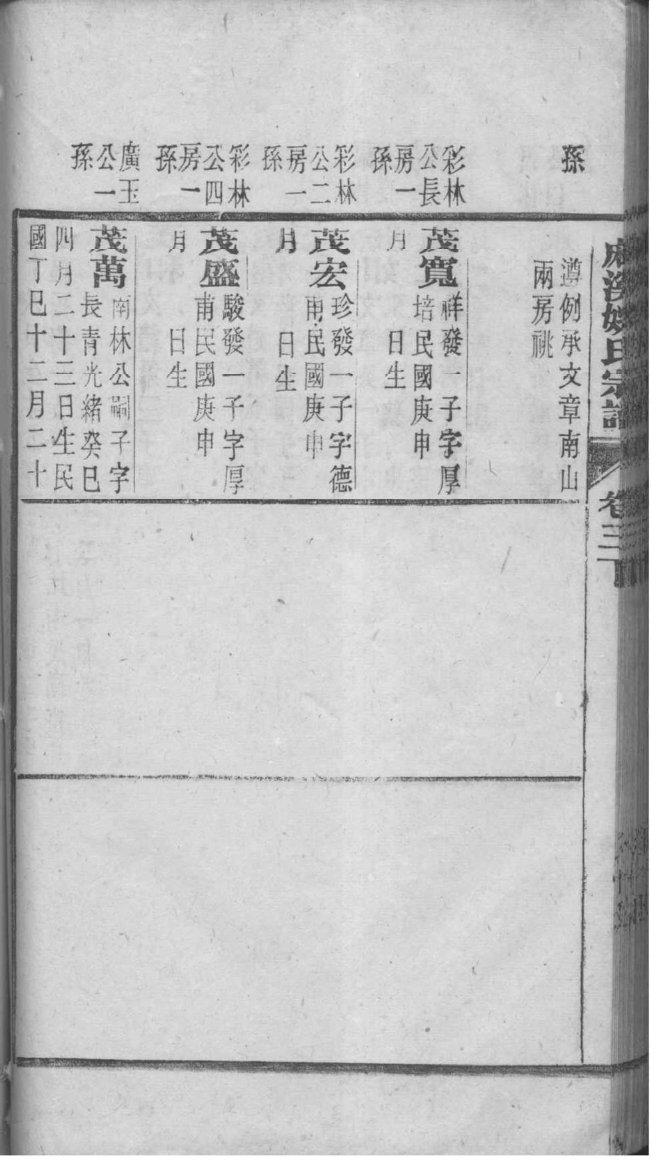 麻溪姚氏宗譜
卷三下
孫
遵例承文章南山
兩房祧
彩林
公長
房一
孫
茂寬
祥發一子字厚
培民國庚申
月
日生
彩林
公二
房一
孫
茂宏
珍發一子字德
甫民國庚申
月
日生
彩林
公四
房一
孫
茂盛
駿發一子字厚
甫民國庚申
月
日生
廣玉
公一
孫
茂萬
南林公嗣子字
長青光緒癸巳
四月二十三日生民
國丁巳十二月二十